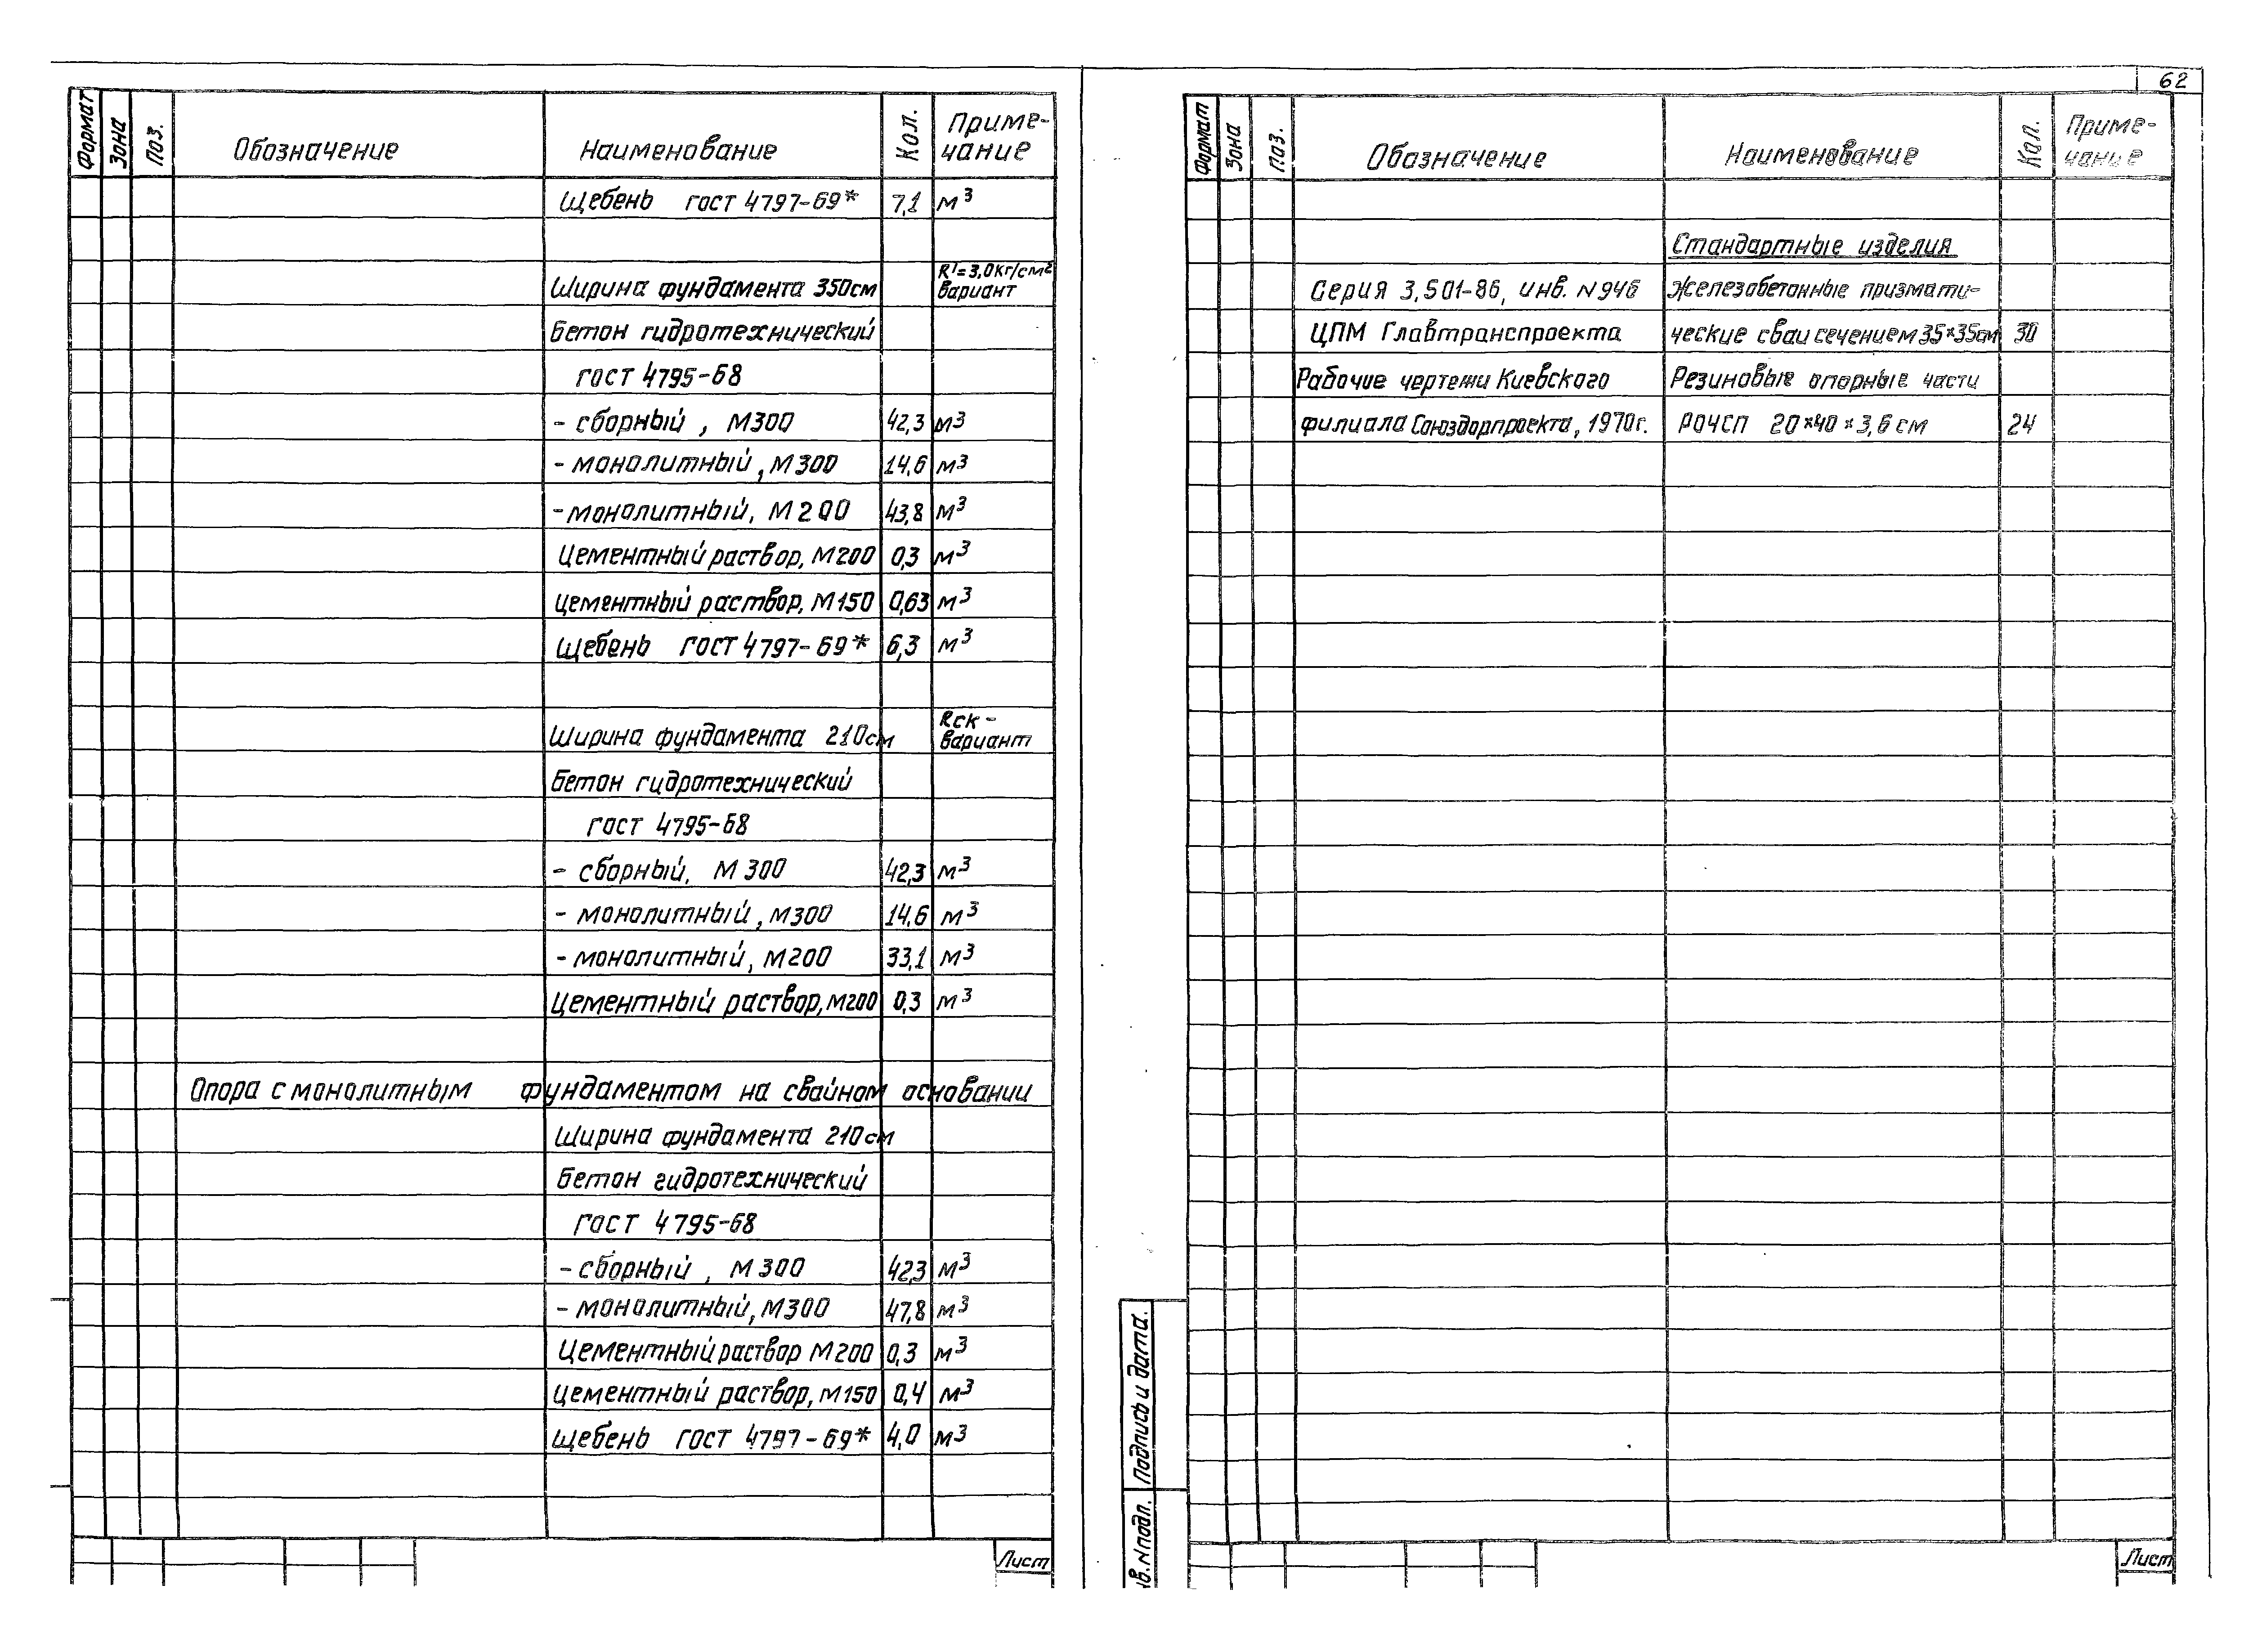 62
Формат Зона Поз. Обозначение Наименование Кол. Приме-
чание
Щебень гост 4797-69* 7,1 м³
Ширина фундамента 350см R'=3,0кг/см² вариант
Бетон гидротехнический
гост 4795-68
- сборный, М300 42,3 м³
- монолитный, М300 14,6 м³
- монолитный, М200 43,8 м³
Цементный раствор, М200 0,3 м³
цементный раствор, М150 0,63 м³
Щебень гост 4797-69* 6,3 м³
Ширина фундамента 210см Rск- вариант
Бетон гидротехнический
гост 4795-68
- сборный, М300 42,3 м³
- монолитный, М300 14,6 м³
- монолитный, М200 33,1 м³
Цементный раствор, М200 0,3 м³
Опора с монолитным фундаментом на свайном основании
Ширина фундамента 210см
Бетон гидротехнический
гост 4795-68
- сборный, М300 42,3 м³
- монолитный, М300 47,8 м³
Цементный раствор М200 0,3 м³
цементный раствор, М150 0,4 м³
щебень гост 4797-69* 4,0 м³
Лист
Формат Зона Поз. Обозначение Наименование Кол. Приме-
чание
Стандартные изделия
Серия 3.501-86, инв. N946 Железобетонные призмати-
ЦПМ Главтранспроекта ческие сваи сечением 35×35см 30
Рабочие чертежи Киевского Резиновые опорные части
филиала Союздорпроекта, 1970г. РОЧСП 20×40×3,6 см 24
Подпись и дата.
нв. N подл.
Лист